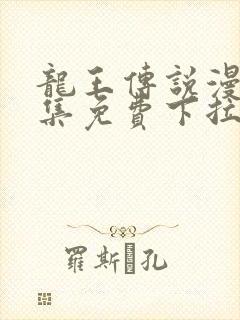 龍王傳說漫
集免費下拉
羅斯 孔